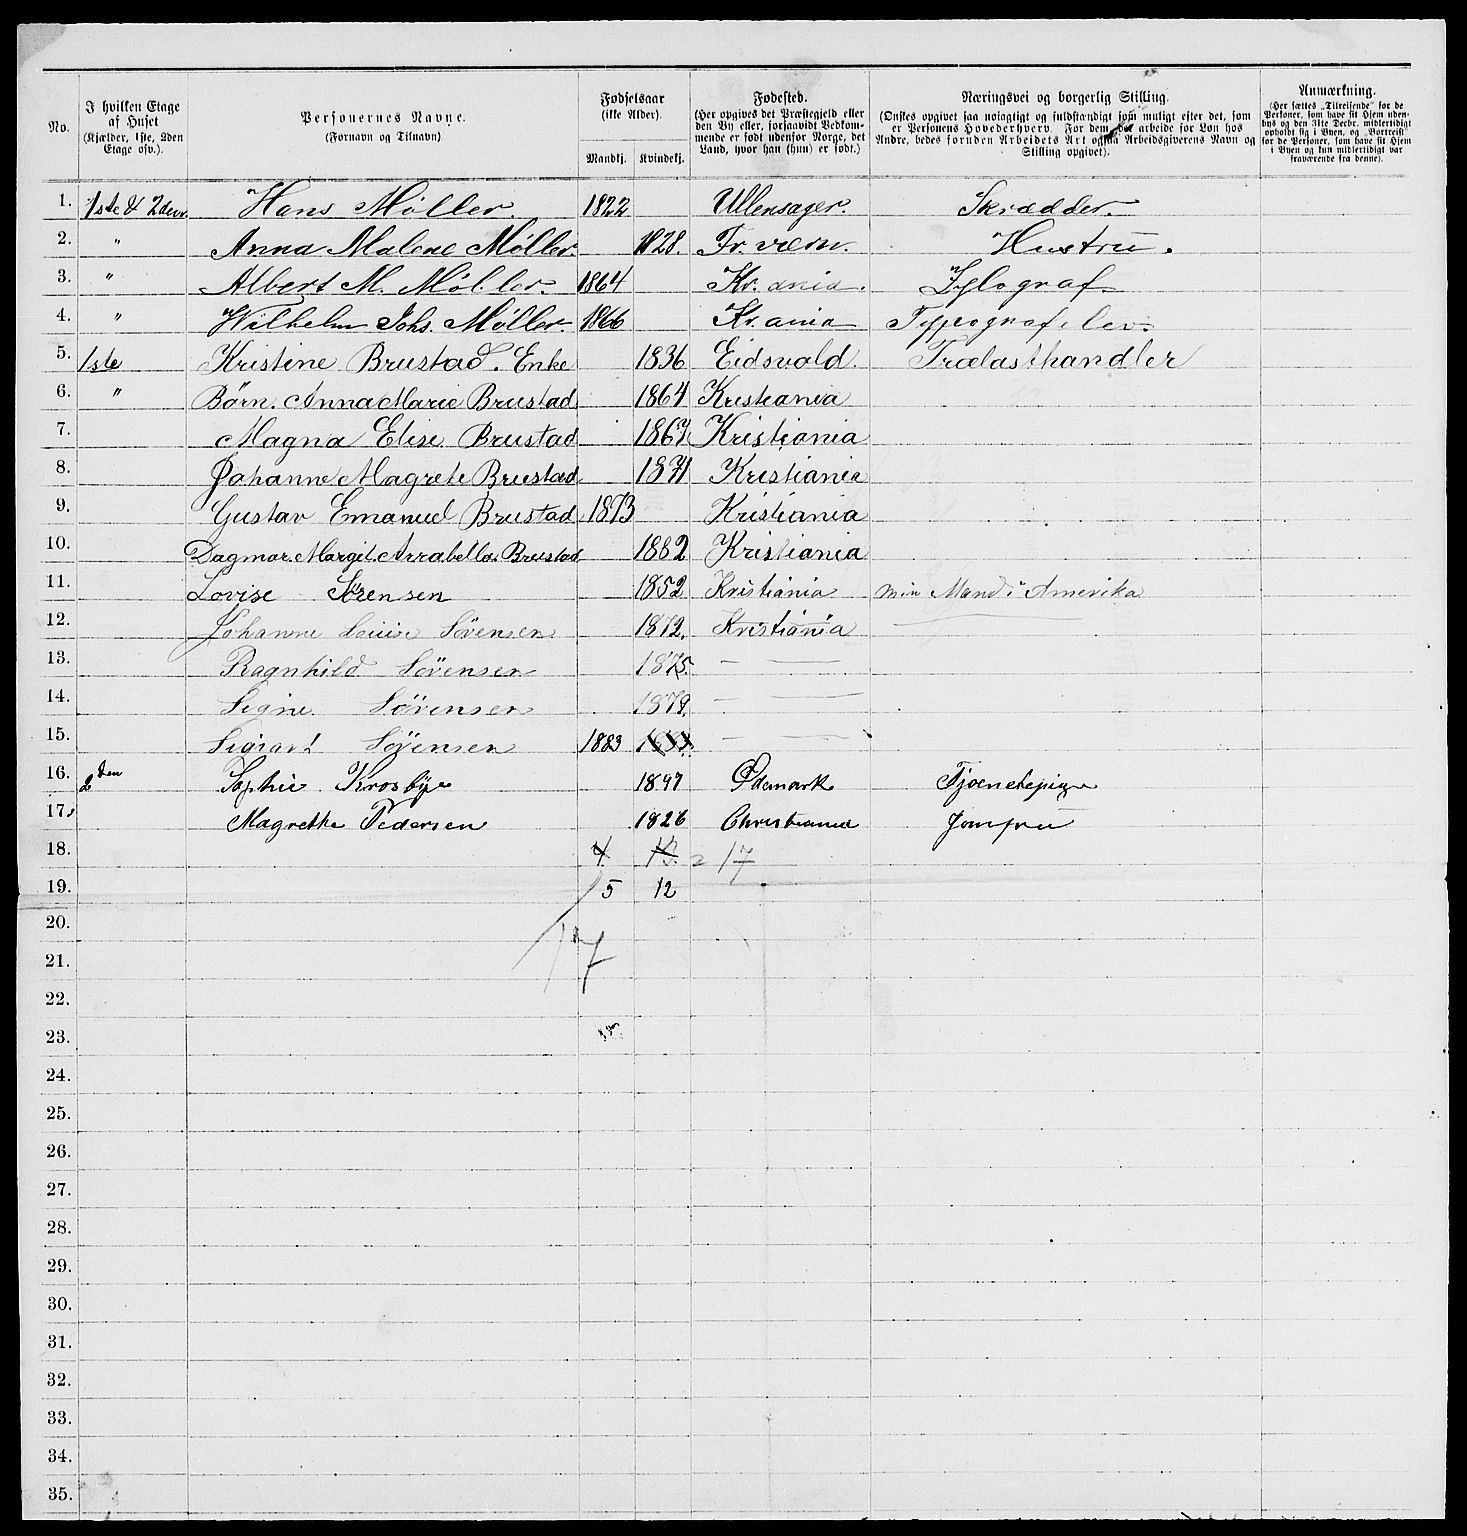 No.
I hvilken Etage af Huset (Kjælder, 1ste, 2den Etage osv.).
Personernes Navne. (Fornavn og Tilnavn).
Fødselsaar (ikke Alder).
Mandkj. Kvindekj.
Fødested. (Her opgives det Præstegjeld eller den By eller, forsaavidt Vedkommende er født udenfor Norge, det Land, hvor han (hun) er født.)
Næringsvei og borgerlig Stilling. (Ønskes opgivet saa nøiagtigt og fuldstændigt som muligt efter det, som er Personens Hovederhverv. For dem, der arbeide for Løn hos Andre, bedes foruden Arbeidets Art ogsaa Arbeidsgiverens Navn og Stilling opgivet).
Anmærkning. (Her sættes „Tilreisende" for de Personer, som have sit Hjem udenbys og den 31te Decbr. midlertidigt opholdt sig i Byen, og „Bortreist" for de Personer, som have sit Hjem i Byen og kun midlertidigt var fraværende fra denne).
1. 1ste & 2den. Hans Møller. 1822 Ullensager. Skrædder.
2. " Anna Malene Møller. 1828. Fr.værn. Hustru.
3. " Albert M. Møller. 1864 Kr.ania. Xylograf.
4. " Wilhelm Johs. Møller. 1866 Kr.ania Typograf elev.
5. 1ste Kristine Brustad. Enke 1836 Eidsvold. Trælasthandler
6. " Børn. Anna Marie Brustad 1864 Kristiania
7. Magna Elise Brustad 1867 Kristiania
8. Johanne Magrete Brustad 1871 Kristiania
9. Gustav Emanuel Brustad 1873 Kristiania
10. Dagmar. Margit. Arrabella. Brustad 1882 Kristiania
11. Lovise Sørensen 1852 Kristiania min Mand i Amerika
12. Johanne Louise Sørensen 1872. Kristiania
13. Ragnhild Sørensen 1875. — —
14. Signe Sørensen 1879. — —
15. Sigvart Sørensen 1883 1883. — —
16. 2den Sophie Krosbye 1847 Ødemark Tjenestepige
17. Magrethe Pedersen 1826 Christiania Jomfru
18. 4. 13. = 17
19. 5 12
20.
17
21.
22.
23.
24.
25.
26.
27.
28.
29.
30.
31.
32.
33.
34.
35.